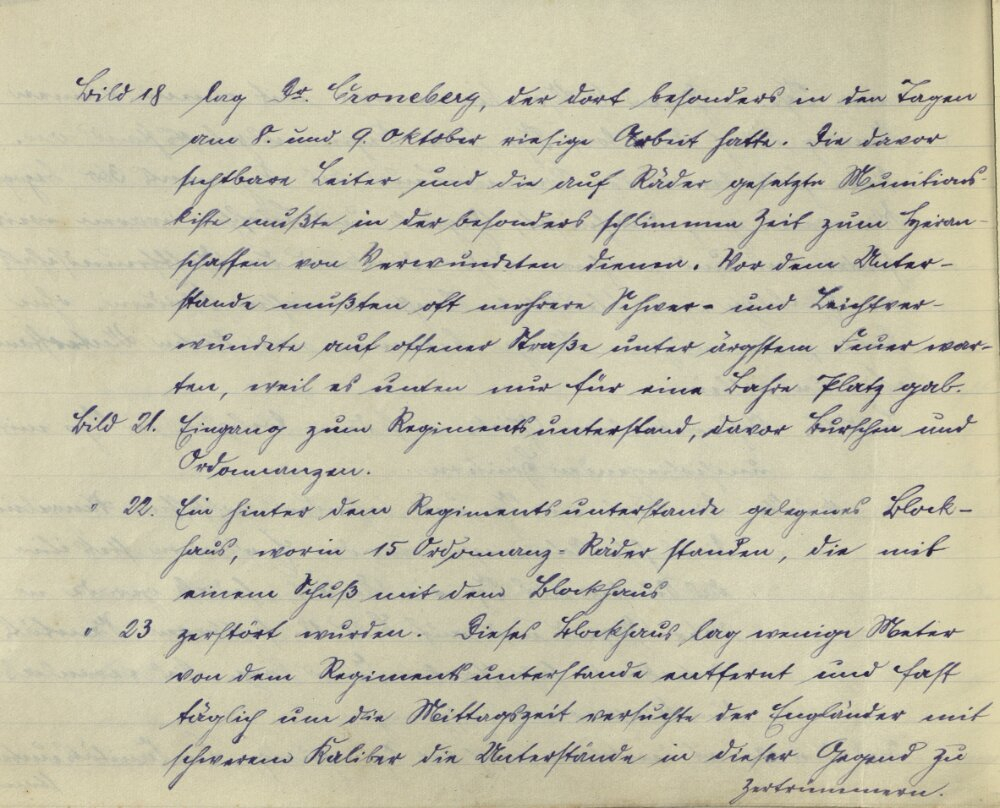 Bild 18 lag Dr. Croneberg, der dort besonders in den Tagen
am 8. und 9. Oktober riesige Arbeit hatte. Die davor
sichtbare Leiter und die auf Räder gesetzte Munitions-
kiste mußte in der besonders schlimmen Zeit zum Heran-
schaffen von Verwundeten dienen. Vor dem Unter-
stande mußten oft mehrere Schwer- und Leichtver-
wundete auf offener Straße unter ärgstem Feuer war-
ten, weil es unten nur für eine Bahre Platz gab.
Bild 21. Eingang zum Regimentsunterstand, davor Burschen und
Ordonnanzen.
" 22. Ein hinter dem Regimentsunterstande gelegenes Block-
haus, worin 15 Ordonnanz-Räder standen, die mit
einem Schuß mit dem Blockhaus
" 23 zerstört wurden. Dieses Blockhaus lag wenige Meter
von dem Regimentsunterstande entfernt und fast
täglich um die Mittagszeit versuchte der Engländer mit
schwerem Kaliber die Unterstände in dieser Gegend zu
zertrümmern.